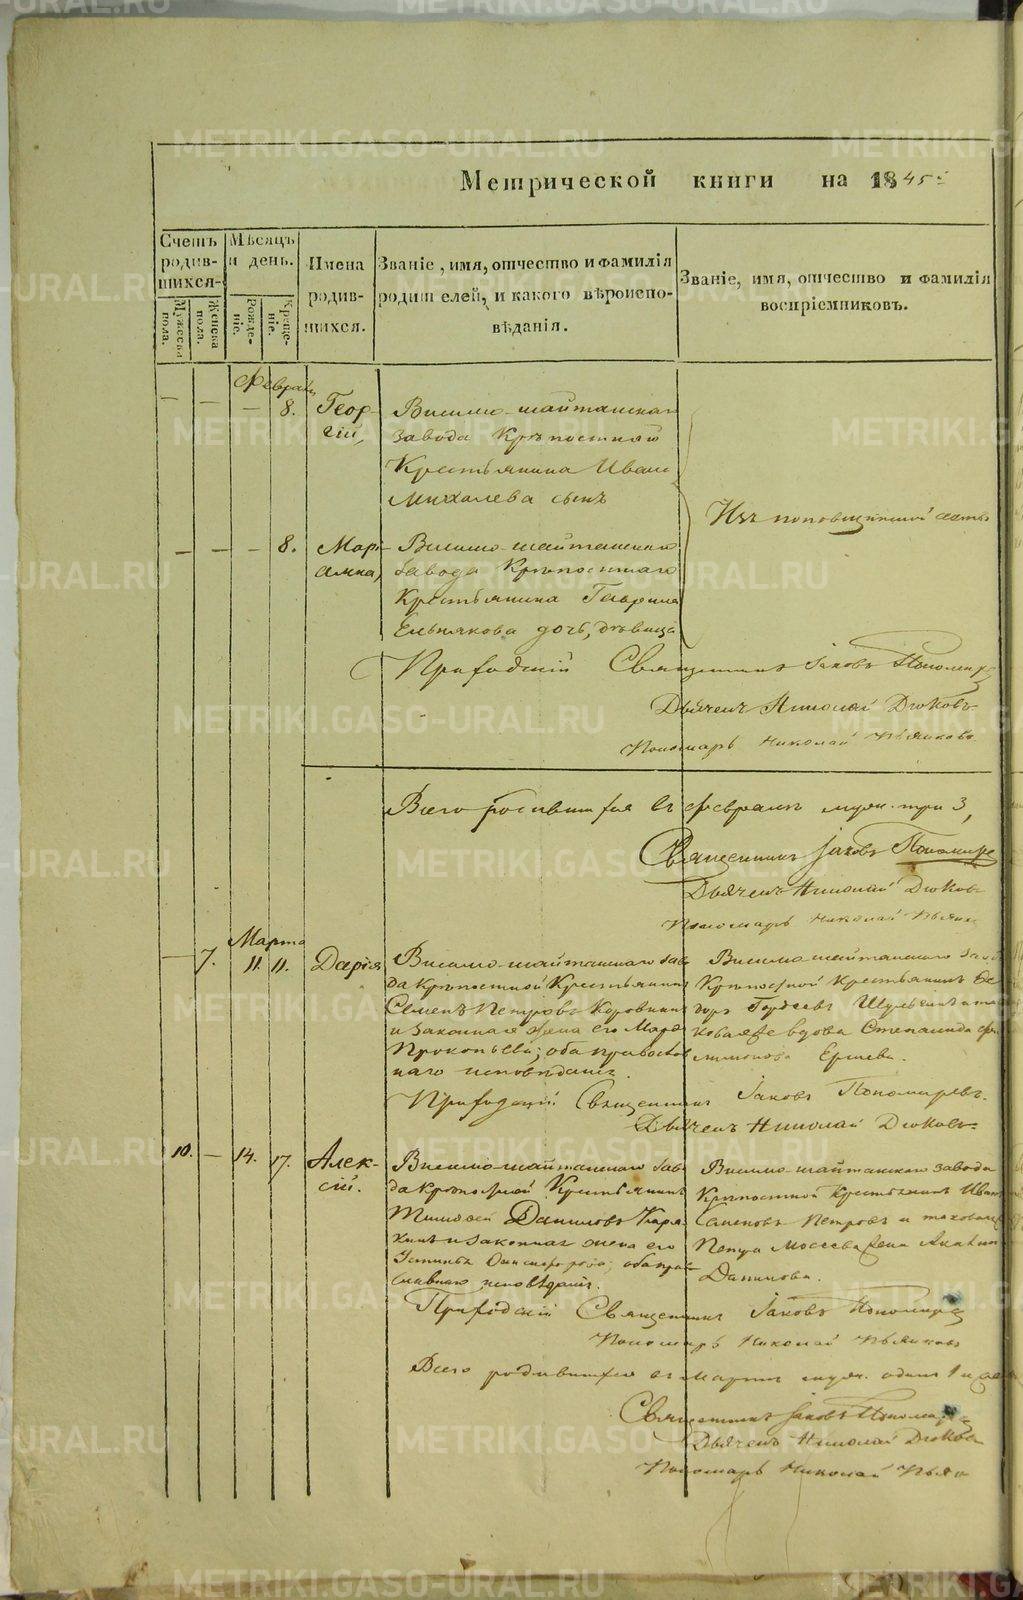 Метрической книги на 1845 г.
Счетъ родившихся.
Мѣсяцъ и день.
Имена родившихся.
Званіе, имя, отчество и фамилія родителей, и какого вѣроисповѣданія.
Званіе, имя, отчество и фамилія воспріемниковъ.
Мужеска пола.
Женска пола.
Рожденіе.
Крещеніе.
Февраль
— — — 8. Геор-
гій,
Висимо-шайтанскаго
завода Крѣпостнаго
Крестьянина Ивана
Михалева сынъ
Изъ поповщинской секты
— — — 8. Марі-
амна,
Висимо-шайтанскаго
завода Крѣпостнаго
Крестьянина Гаврила
Ельнякова дочь, дѣвица
Приходскій Священникъ Іаковъ Пономар
Дьячекъ Николай Дюковъ
Пономарь Николай
Всего родившихся въ февралѣ муж. три 3,
Священникъ Іаковъ Пономаре
Дьячекъ Николай Дюковъ
Пономарь Николай
Марта
— 7. 11. 11. Дарія
Висимо-шайтанскаго заво-
да Крѣпостной Крестьянинъ
Семенъ Петровъ Коровкинъ
и законная жена его Марѳ
Прокопьева; оба православ
наго исповѣданія.
Висимо-шайтанскаго заво
Крѣпостной крестьянинъ Ѳе
доръ Гордеевъ Шульгинъ и та
коваяже вдова Степанида
Ершева.
Приходскій Священникъ Іаковъ Пономаревъ.
Дьячекъ Николай Дюковъ
10. — 14. 17. Алек-
сій.
Висимо-шайтанскаго заво-
да крѣпостной Крестьянинъ
Тимофей Даниловъ Каря
кинъ и законная жена его
Устинья; обаправо
славнаго исповѣданія.
Висимо-шайтанскаго завода
Крѣпостной крестьянинъ Иванъ
Семеновъ Петровъ и таковаго
Петра Мосеева жена
Данилова.
Приходскій Священникъ Іаковъ Пономаре
Пономарь Николай
Всего родившихся въ Мартѣ муж. одинъ 1 и
Священникъ Іаковъ Пономаре
Дьячекъ Николай Дюковъ
Пономарь Николай
METRIKI.GASO-URAL.RU